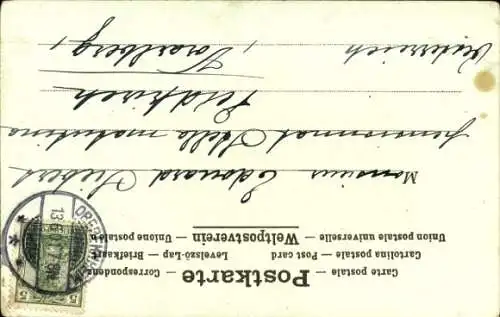 Postkarte
Carte postale — Correspondenz
Cartolina postale — Post card — Levelező-Lap — Briefkaart
Union postale universelle — Weltpostverein — Unione postale
Monsieur Edouard Seibert
pensionnat Stella matutina
Feldkirch
Vorarlberg,
5
5